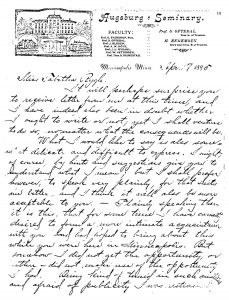 Augsburg Seminary.
FACULTY:
Prof. S. OFTEDAL,
Minneapolis, Minn., Apr. 7 1898
Miss Tabitha
It will perhaps surprise you
to receive letter from me at this time, and
I have indeed also been in doubt whether
I ought to write or not, yet I shall venture
to do so, no matter what the consequences will be.
What I would like to say is also some-
what delicate and difficult to express. I might
of course, by hints and suggestions give you to
understand what I mean, but I shall prefer
however, to speak very plainly, for that suits
me better, and I think it will also be more
acceptable to you. Plainly speaking then
it is this, that for some time I have earnestly
desired to form a more intimate acquaintance
with you and had hoped to bring about this
while you were here in Minneapolis. But
somehow I did not get the opportunity, or
rather I did not make use of the opportunity
I had. Being kind of timid in such cases
and afraid of publicity I was